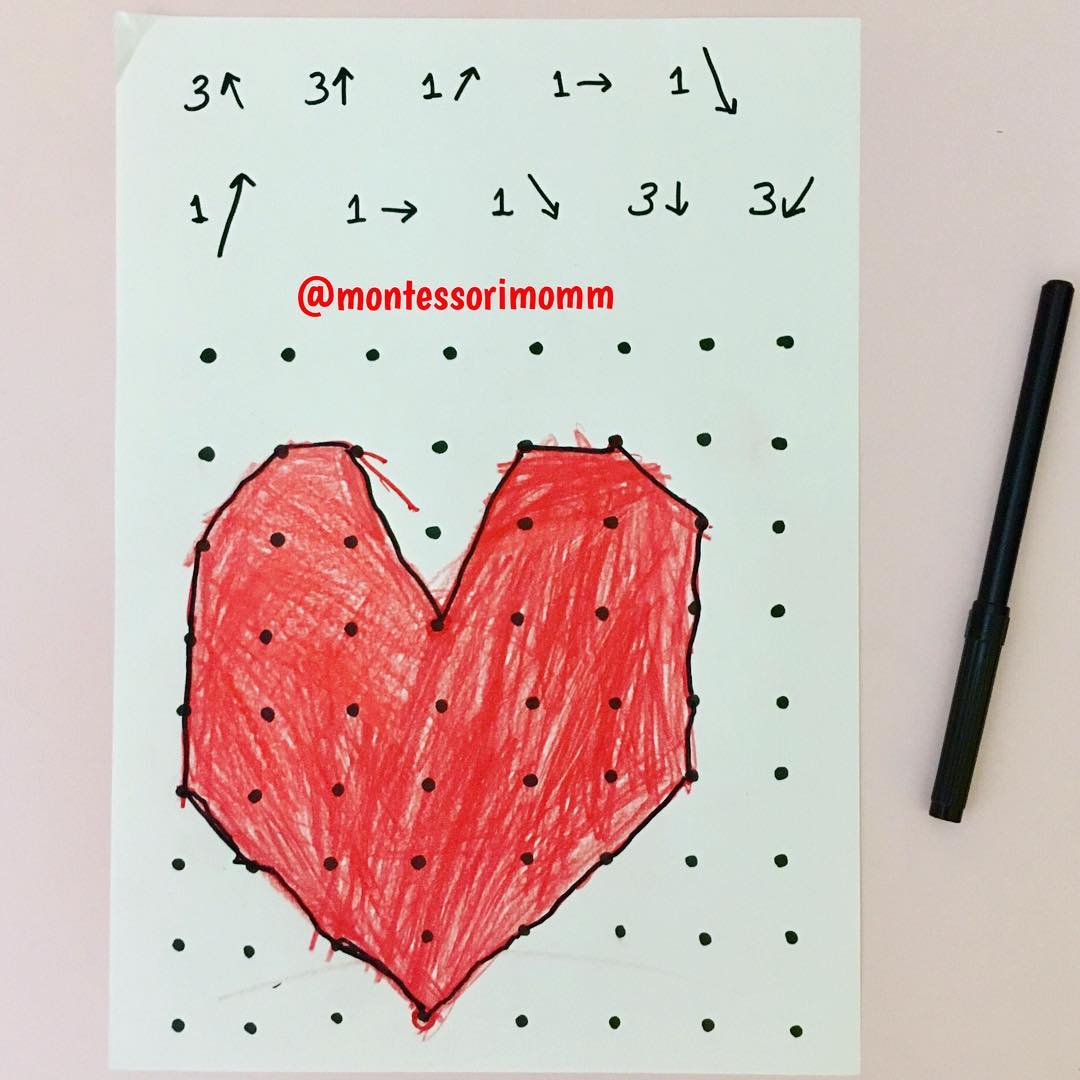 3↖ 3↑ 1↗ 1→ 1↘
1↗ 1→ 1↘ 3↓ 3↙
@montessorimomm